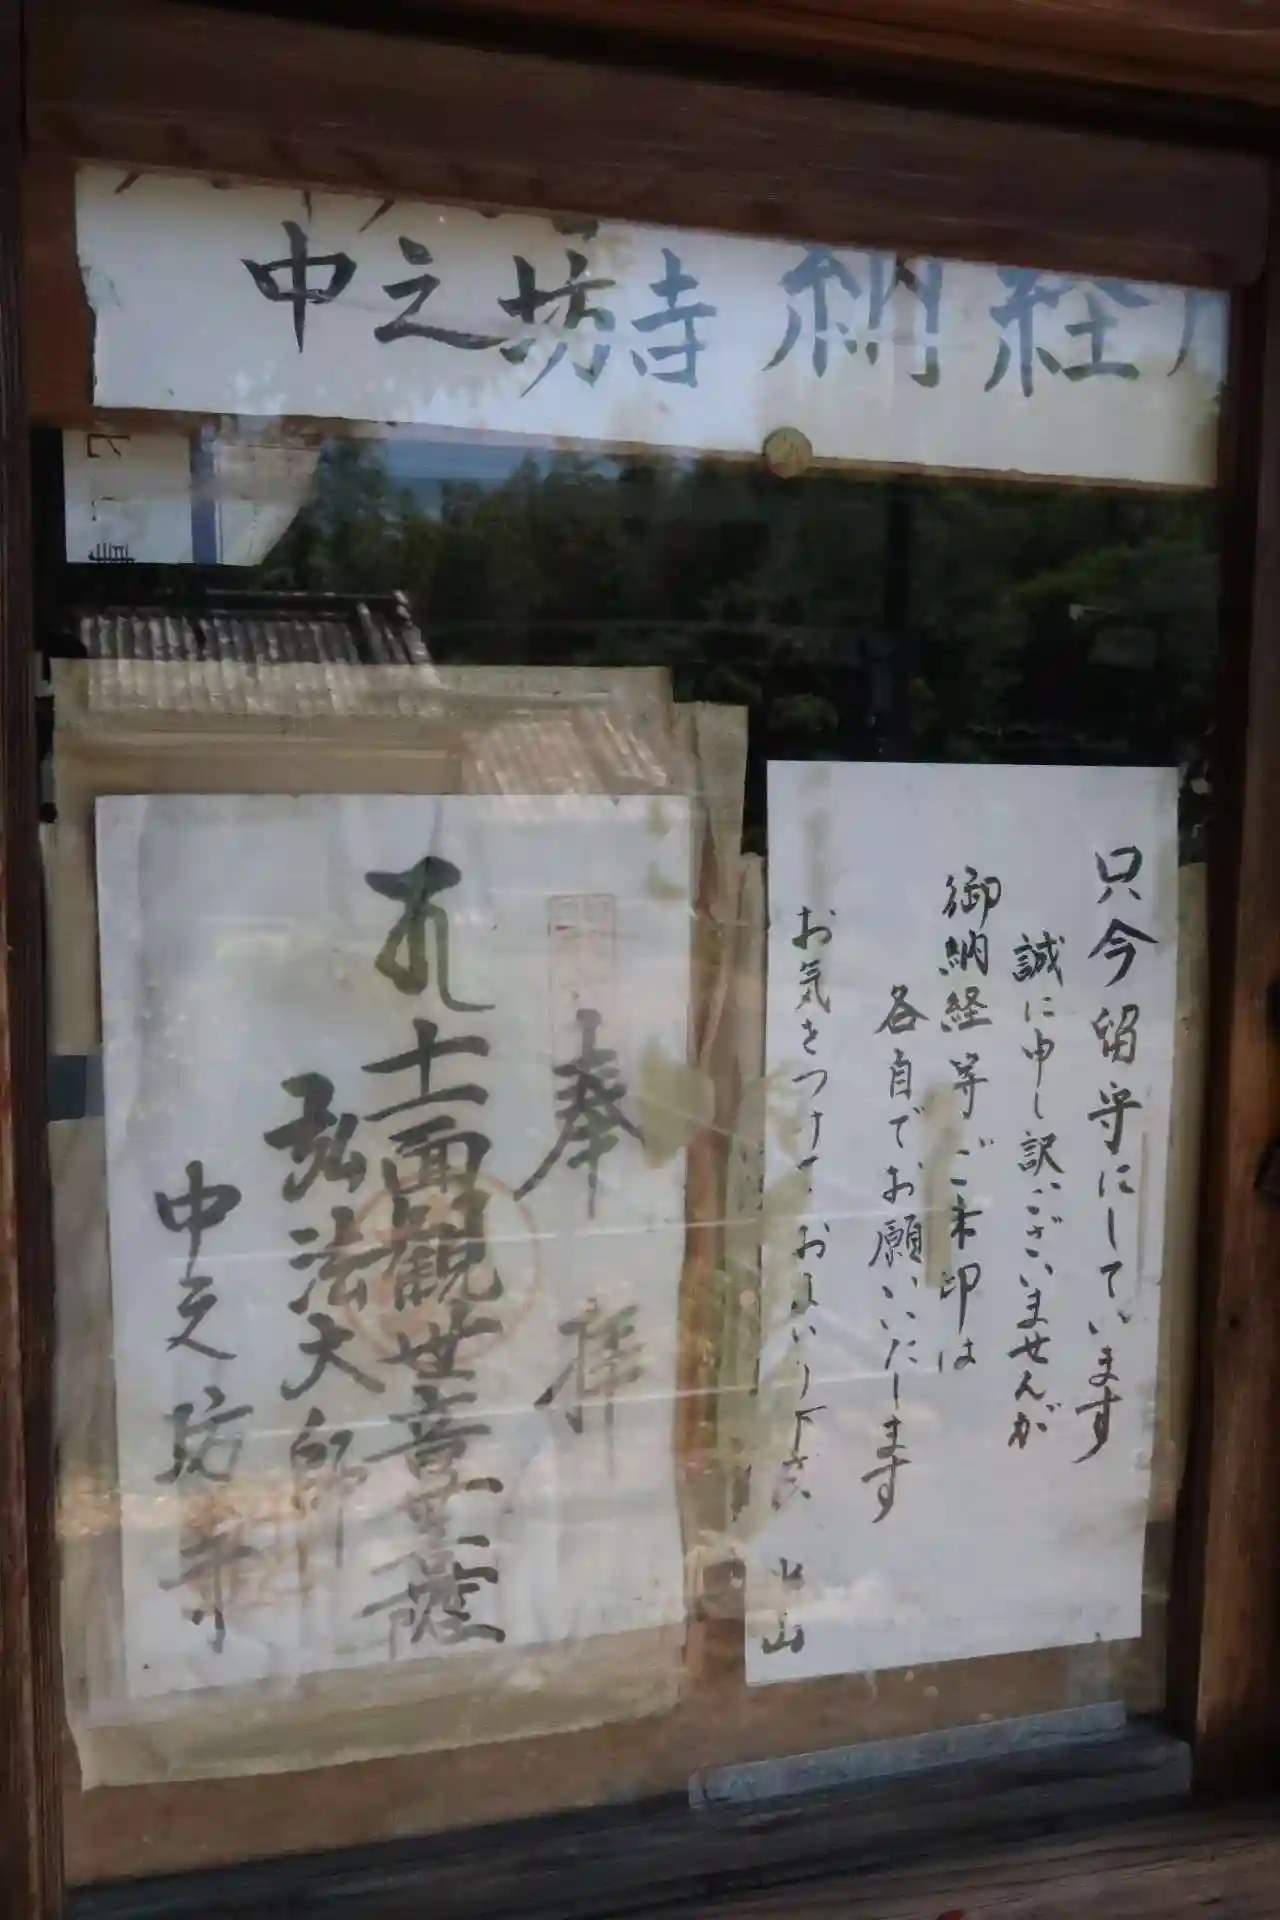 中之坊寺納経
只今留守にしています
誠に申し訳ございませんが
御納経等ご朱印は
各自でお願いいたします
お気をつけておまいり下さい
山
奉拝
十一面観世音菩薩
弘法大師
中之坊寺